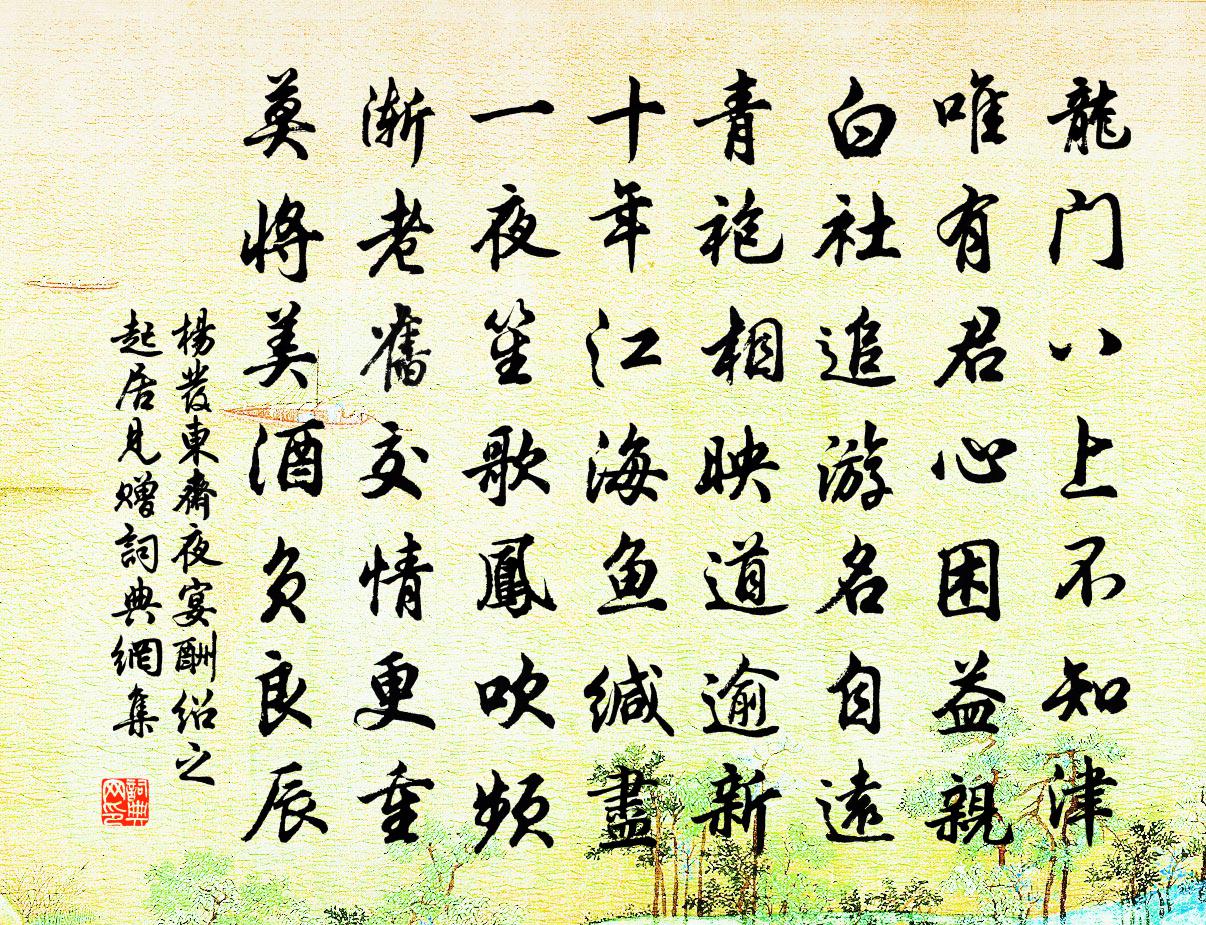 龍门八上不知津
唯有君心困益親
白社追游名自遠
青袍相映道逾新
十年江海魚缄盡
一夜笙歌鳳吹頻
漸老舊交情更重
莫將美酒负良辰
楊發東齋夜宴酬紹之
起居見贈詞典網集
詞典
网印